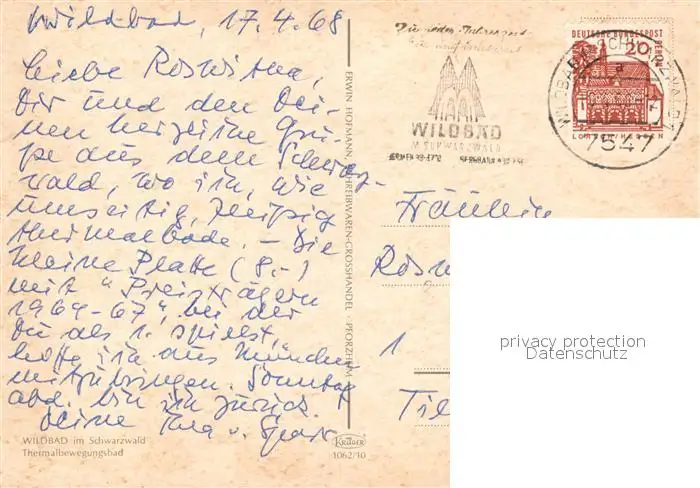 Wildbad, 17.4.68
Liebe Roswitha,
Dir und den Dei-
nen herzliche Grü-
ße aus dem Schwarz-
wald, wo ich, wie
umseitig, fleißig
thermalbade. - Die
kleine Platte (8.-)
mit "Preisträgern
1964-67", bei der
Du als 1. spielst,
hoffe ich aus München
mitzubringen. Sonntag
abd. bin ich zurück!
Deine
WILDBAD im Schwarzwald
Thermalbewegungsbad
ERWIN HOFMANN, SCHREIBWAREN-GROSSHANDEL PFORZHEIM
KRÜGER
1062/10
Zu jeder Jahreszeit
WILDBAD
IM SCHWARZWALD
DEUTSCHE BUNDESPOST
BERLIN
20
LORSCH/HESSEN
WILDBAD SCHWARZWALD
a
7547
Fräulein
Rosw
1
privacy protection
Datenschutz